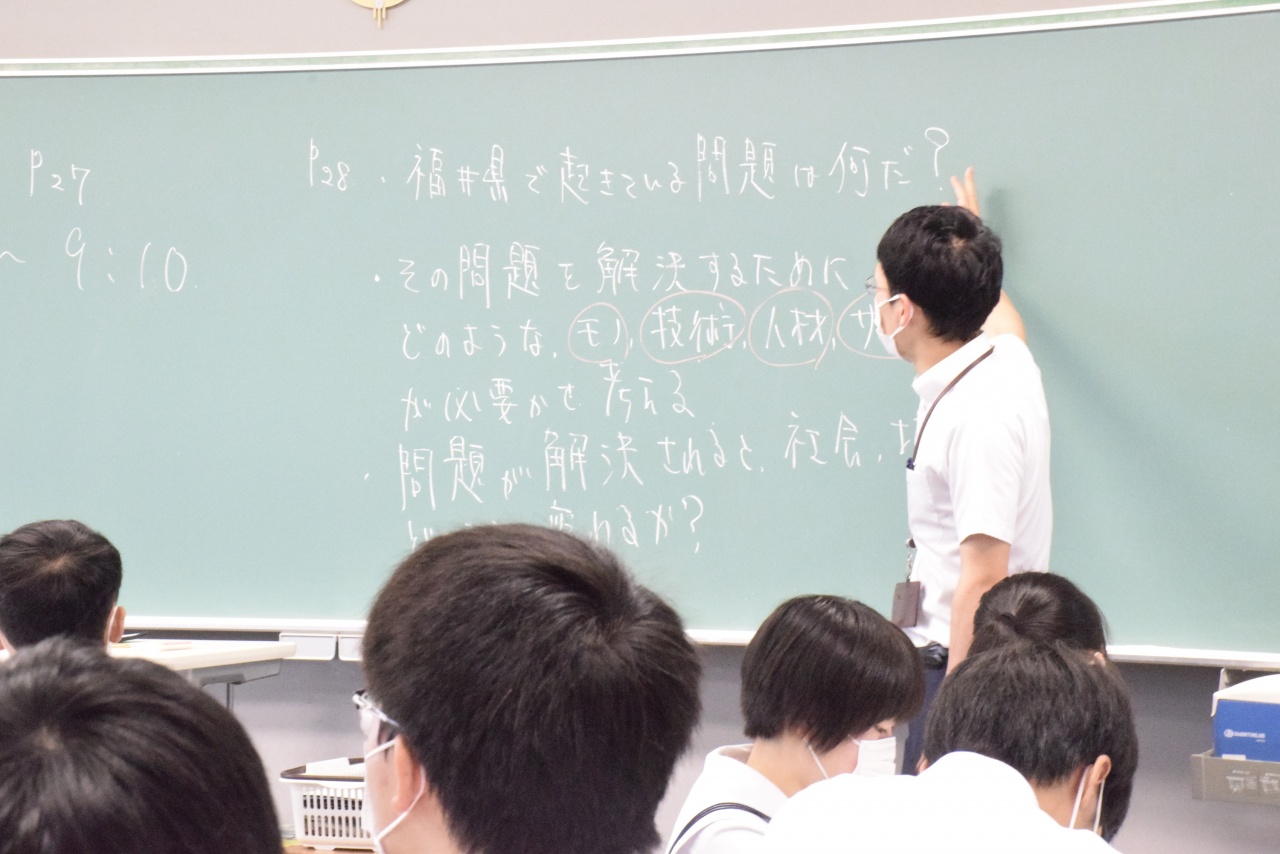 P27
~ 9:10
P28 ・福井県で起きている問題は何だ?
・その問題を解決するために
どのような、モノ、技術、人材、サ
が必要かを考える
・問題が解決されると、社会、
変わるか?